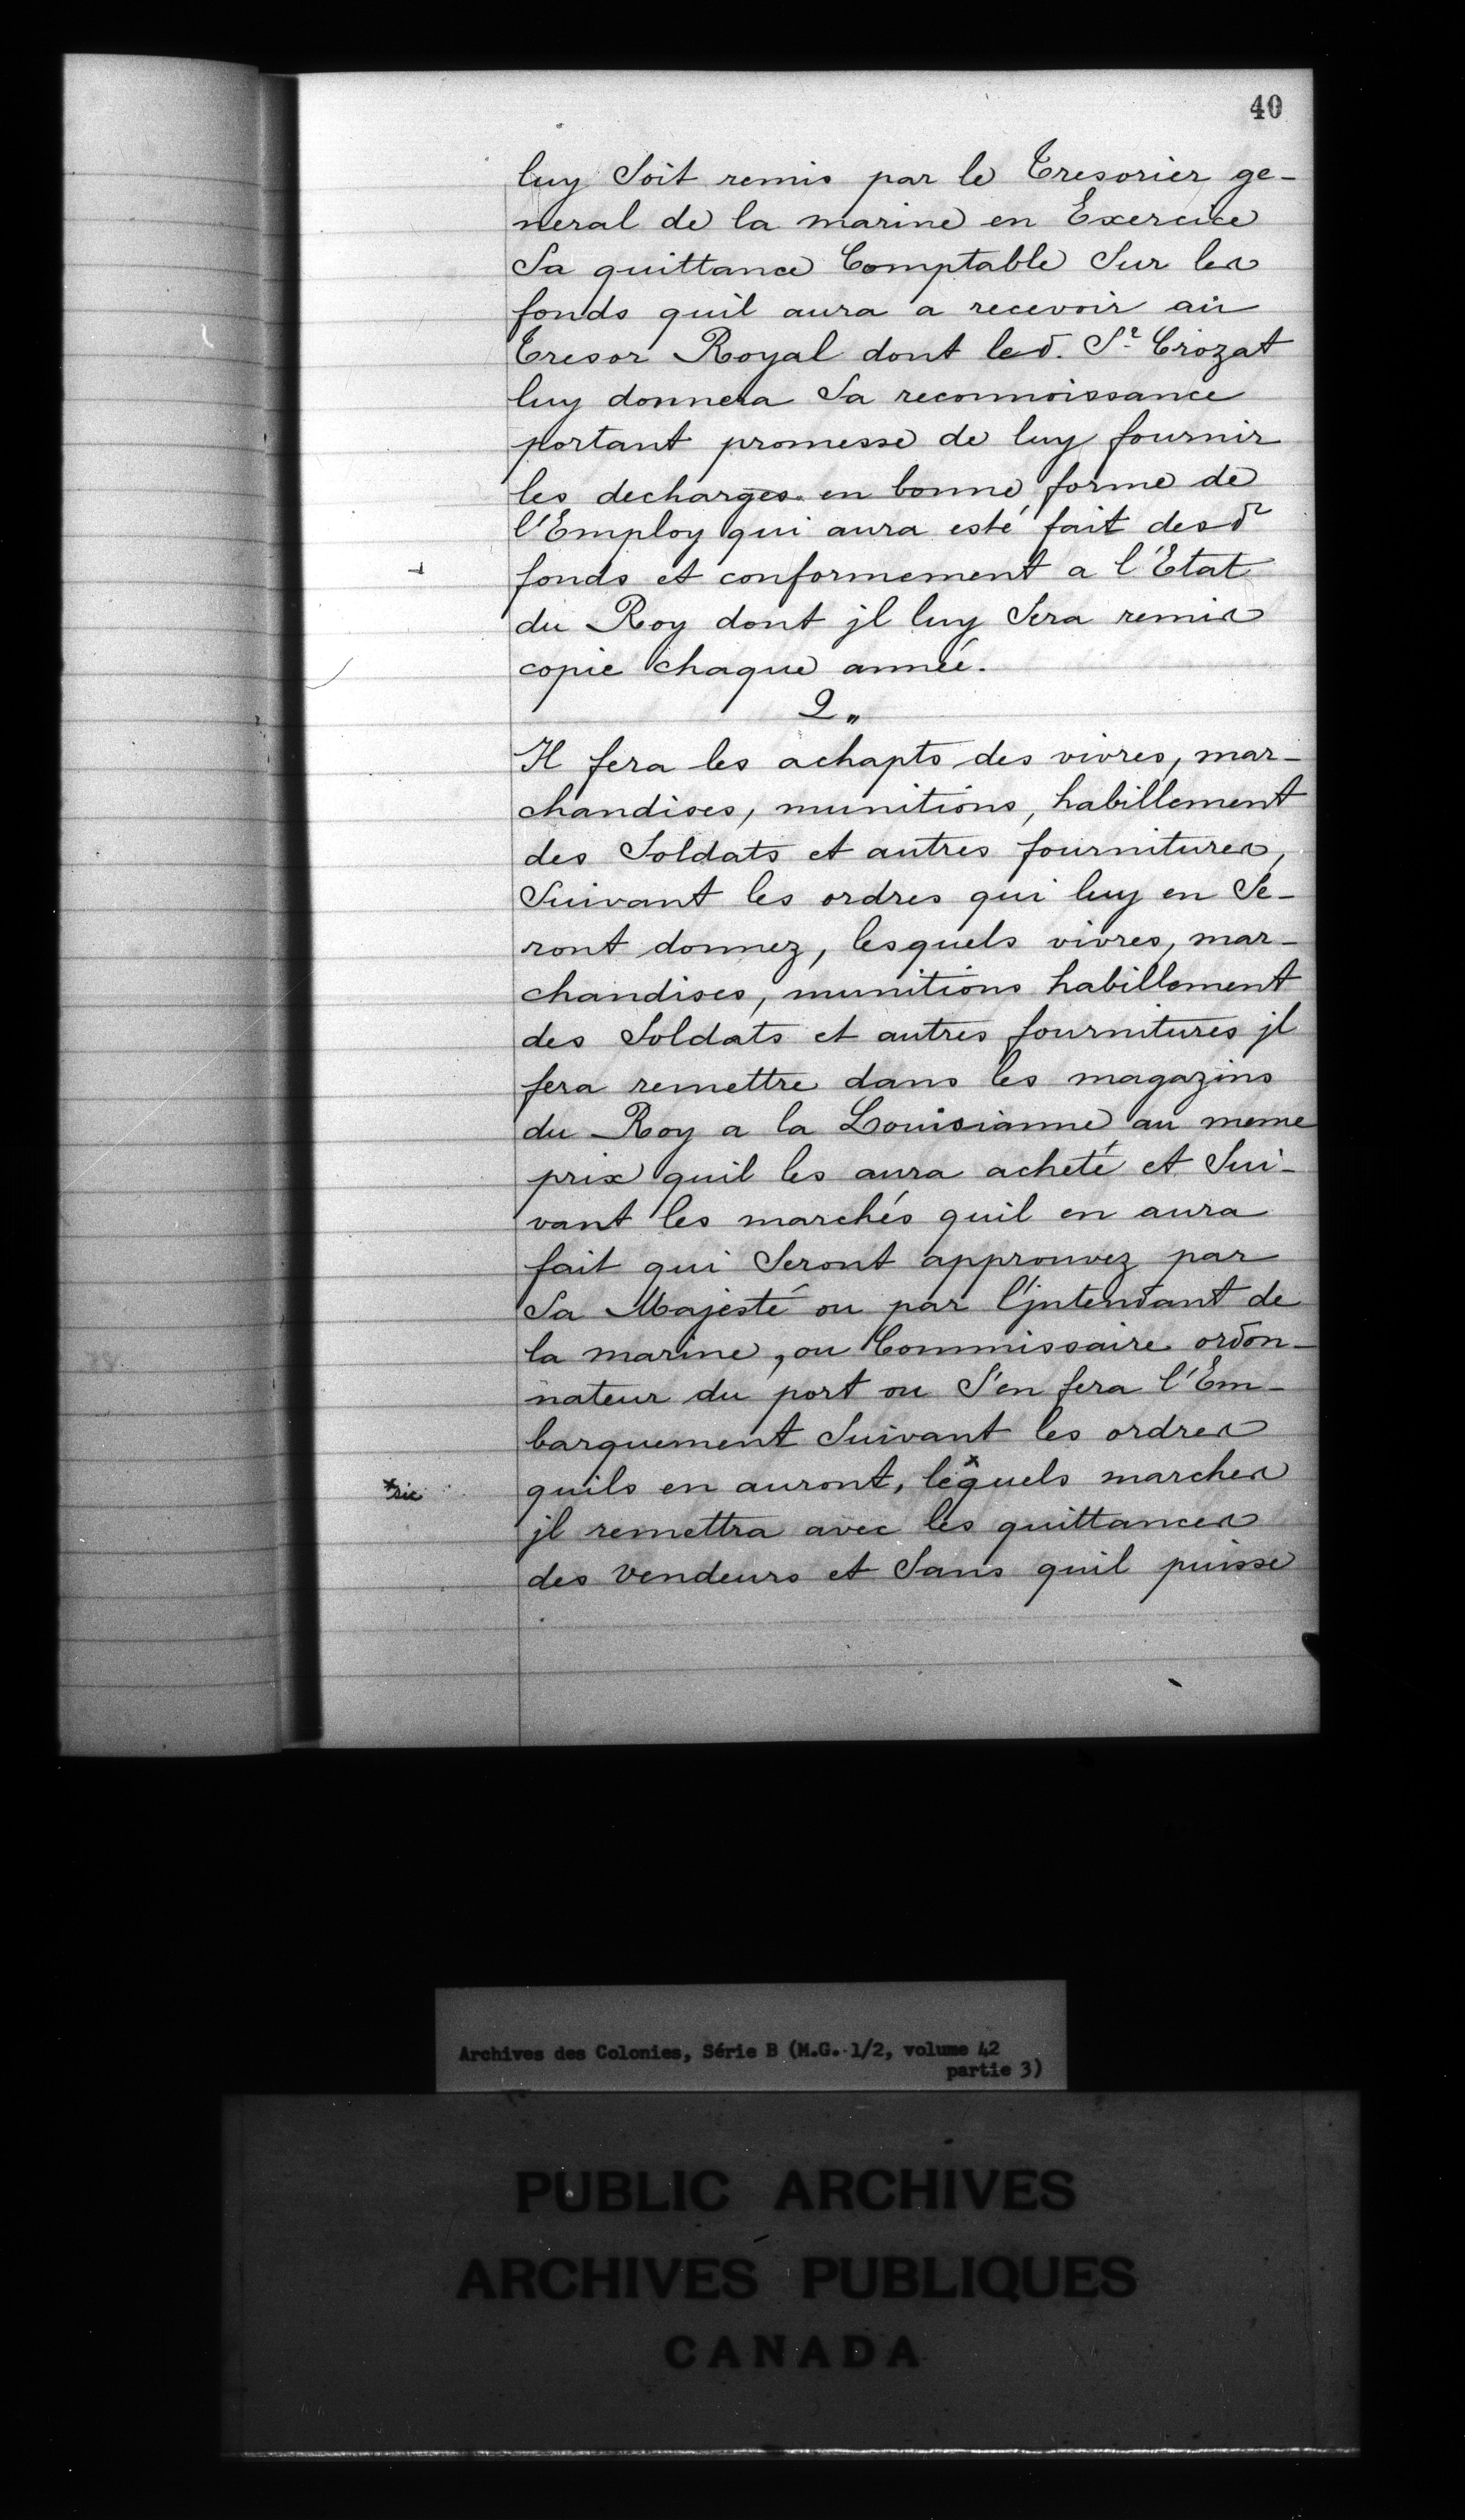 40
luy Soit remis par le Tresorier ge-
neral de la marine en Exercice
Sa quittance Comptable Sur les
fonds quil aura a recevoir au
Tresor Royal dont led. Sr. Crozat
luy donnera Sa reconnoissance
portant promesse de luy fournir
les decharges en bonne forme de
l'Employ qui aura esté fait desd
fonds et conformement a l'Etat
du Roy dont jl luy Sera remis
copie chaque année.
2"
Il fera les achapts des vivres, mar-
chandises, munitions, habillement
des Soldats et autres fournitures,
Suivant les ordres qui luy en Se-
ront donnez, lesquels vivres, mar-
chandises, munitions habillement
des Soldats et autres fournitures jl
fera remettre dans les magazins
du Roy a la Louisianne au meme
prix quil les aura acheté et Sui-
vant les marchés quil en aura
fait qui Seront approuvez par
Sa Majesté ou par l'jntendant de
la marine, ou Commissaire ordon-
nateur du port ou S'en fera l'Em-
barquement Suivant les ordres
*sic quils en auront, lequels* marches
jl remettra avec les quittances
des Vendeurs et Sans quil puisse
Archives des Colonies, Série B (M.G. 1/2, volume 42
partie 3)
PUBLIC ARCHIVES
ARCHIVES PUBLIQUES
CANADA